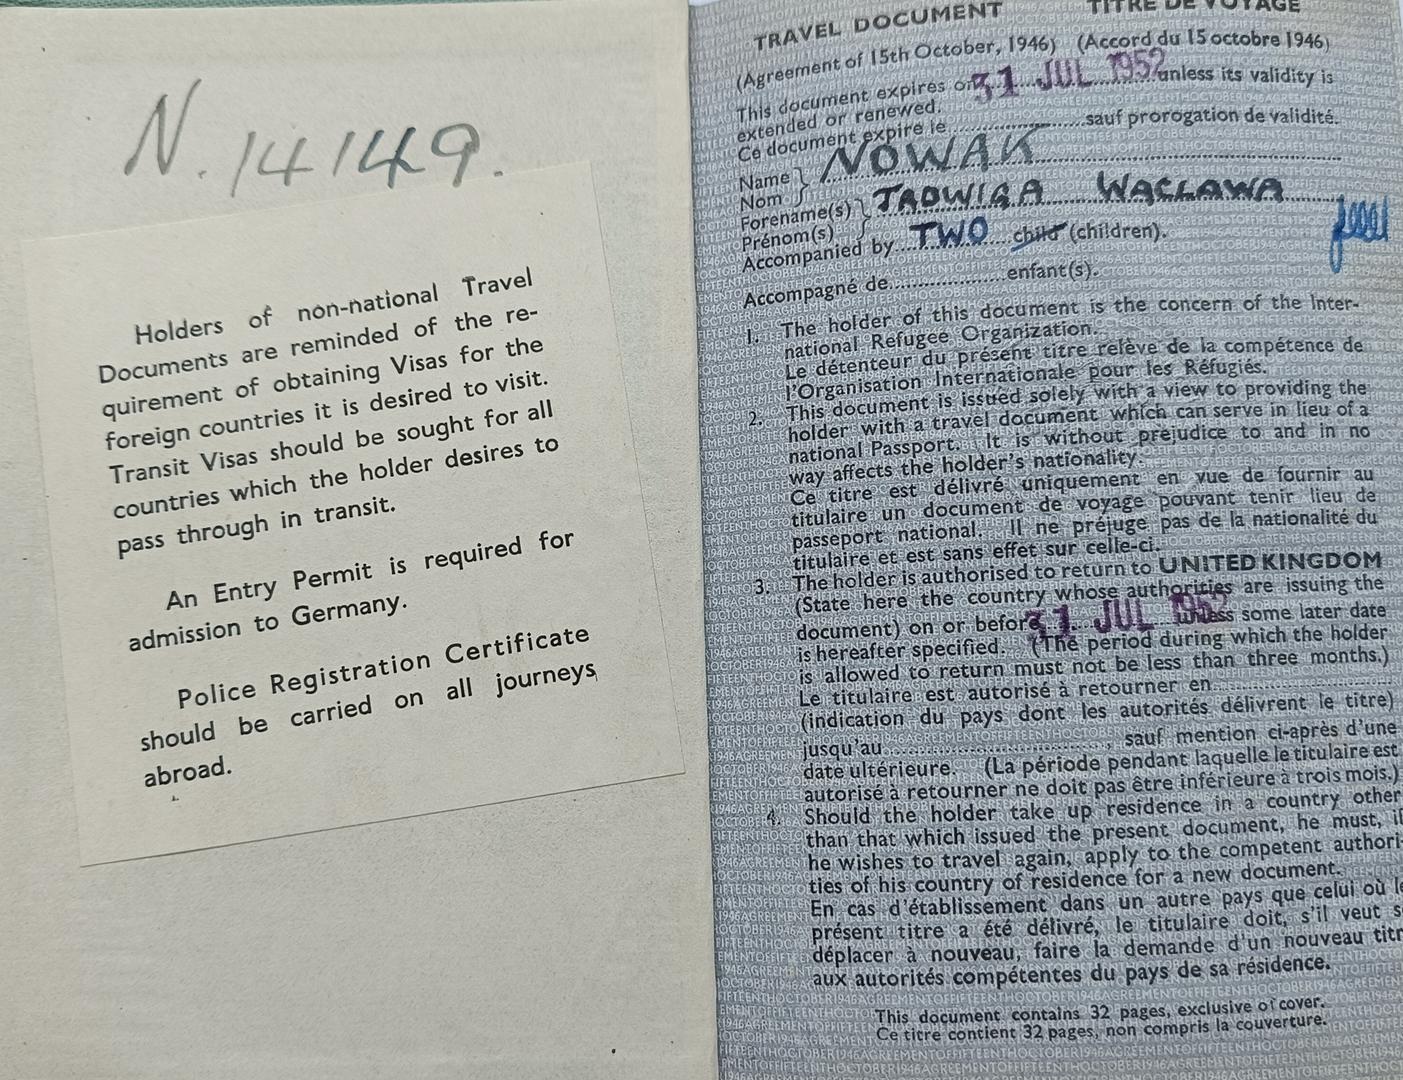 N. 14149.
Holders of non-national Travel
Documents are reminded of the re-
quirement of obtaining Visas for the
foreign countries it is desired to visit.
Transit Visas should be sought for all
countries which the holder desires to
pass through in transit.
An Entry Permit is required for
admission to Germany.
Police Registration Certificate
should be carried on all journeys
abroad.
TRAVEL DOCUMENT TITRE DE VOYAGE
(Agreement of 15th October, 1946) (Accord du 15 octobre 1946)
This document expires on 31 JUL 1952 unless its validity is
extended or renewed.
Ce document expire le sauf prorogation de validité.
Name
Nom
NOWAK
Forename(s)
Prénom(s)
JADWIGA WACŁAWA
Accompanied by TWO child (children).
Accompagné de enfant(s).
1. The holder of this document is the concern of the Inter-
national Refugee Organization.
Le détenteur du présent titre relève de la compétence de
l'Organisation Internationale pour les Réfugiés.
2. This document is issued solely with a view to providing the
holder with a travel document which can serve in lieu of a
national Passport. It is without prejudice to and in no
way affects the holder's nationality.
Ce titre est délivré uniquement en vue de fournir au
titulaire un document de voyage pouvant tenir lieu de
passeport national. Il ne préjuge pas de la nationalité du
titulaire et est sans effet sur celle-ci.
3. The holder is authorised to return to UNITED KINGDOM
(State here the country whose authorities are issuing the
document) on or before 31 JUL 1952 unless some later date
is hereafter specified. (The period during which the holder
is allowed to return must not be less than three months.)
Le titulaire est autorisé à retourner en
(indication du pays dont les autorités délivrent le titre)
jusqu'au , sauf mention ci-après d'une
date ultérieure. (La période pendant laquelle le titulaire est
autorisé à retourner ne doit pas être inférieure à trois mois.)
4. Should the holder take up residence in a country other
than that which issued the present document, he must, if
he wishes to travel again, apply to the competent authori-
ties of his country of residence for a new document.
En cas d'établissement dans un autre pays que celui où le
présent titre a été délivré, le titulaire doit, s'il veut se
déplacer à nouveau, faire la demande d'un nouveau titre
aux autorités compétentes du pays de sa résidence.
This document contains 32 pages, exclusive of cover.
Ce titre contient 32 pages, non compris la couverture.